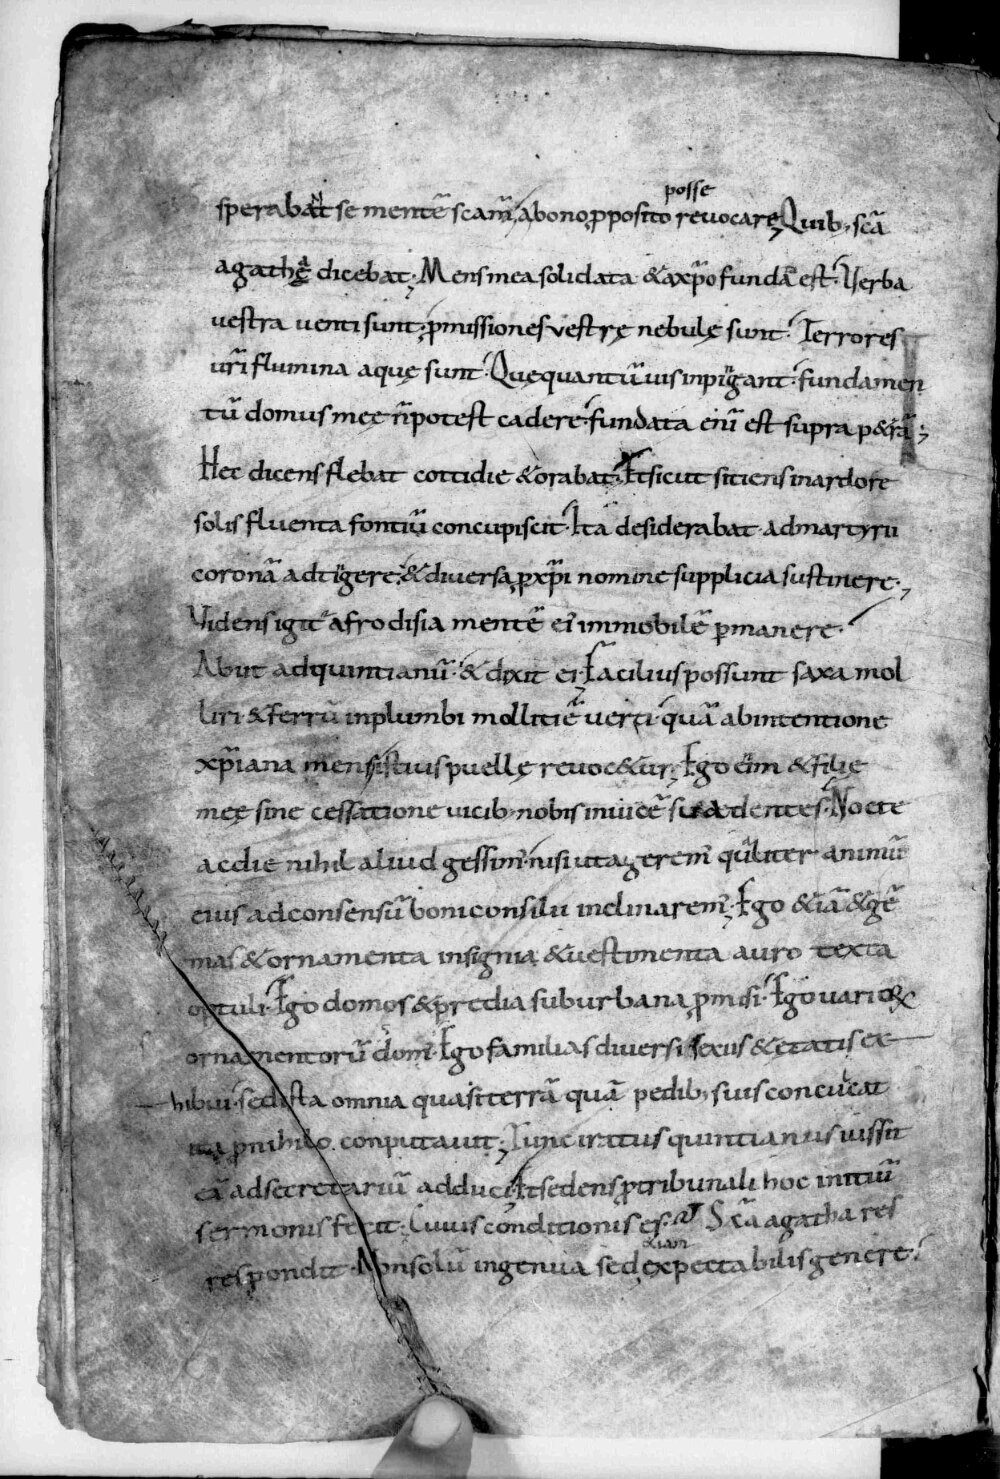 posse
sperabat se mentē scam̄ abono pposito revocare; Quib; scā
agathę dicebat; Mens mea solidata & axp̄o fundā est. Verba
vestra venti sunt; pmissiones vestrę nebulę sunt. Terrores
ur̄i flumina aquę sunt. Quę quantū uis inpingant. fundamen
tū domus meę n̄ potest cadere. fundata eni ū est supra p&rā;
Hęc dicens flebat cottidie & orabat. Et sicut sitiens in ardore
solis fluenta fontiū concupiscit. Ita desiderabat ad martyrii
coronā adtigere. & diversa p xp̄i nomine supplicia sustinere;
Videns igit afrodisia mentē ei immobilē pmanere.
Abiit ad quintianū. & dixit ei; Facilius possunt saxa mol
liri & ferrū in plumbi mollitiē verti. quā ab intentione
xp̄iana mens istius puellę revoc&ur; Ego eī m & filię
meę sine cessatione vicib; nobis invicē suadentes. Nocte
ac die nihil aliud gessim. nisi ut agerem qūliter animū
eius ad consensū boni consilii inclinarem; Ego &iā & gē
mas & ornamenta insignia & vestimenta auro texta
optuli. Ego domos & predia suburbana pmisi. Ego varior
ornamentorū dom. Ego familias diversi sexus & etatis ex
hibui. sed ista omnia quasi terrā quā pedib; suis concucat
ita p nihilo conputavit; Tunc iratus quintianus iussit
eā ad secretariū adduci. Et sedens p tribunali hoc initiū
sermonis fecit; Cuius conditionis es. Scā agatha res
&iam
respondit. Non solū ingenua sed expectabilis genere.